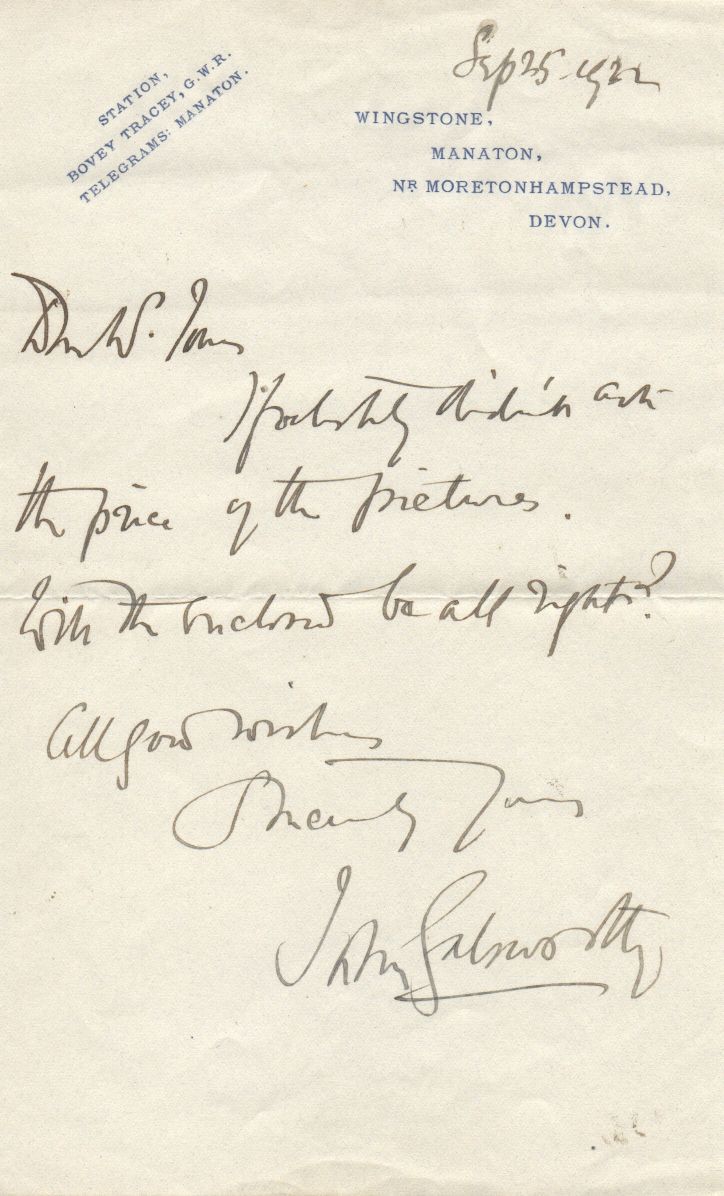 STATION,
BOVEY TRACEY, G.W.R.
TELEGRAMS: MANATON.
Sep 25. 1922
WINGSTONE,
MANATON,
NR MORETONHAMPSTEAD,
DEVON.
Dear
I foolishly didn't ask
the price of the pictures.
Will the enclosed be all right?
All good wishes
Sincerely Yours
John Galsworthy